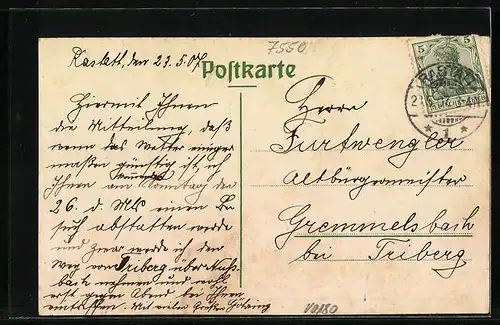 7550
Rastatt, den 23.5.07
Postkarte
5 5
RASTATT
* 1 *
Hiermit Ihnen
die Mitteilung, daß
wenn das Wetter einiger
maßen günstig ist, ich
Ihnen am Sonntag den
26. d. Mts einen Be
such abstatten werde
und zwar werde ich den
Weg von Triberg über Nuß
bach nehmen und wohl
erst gegen Abend bei Ihnen
eintreffen. Mit vielen Grüßen
Herrn
Furtwengler
Altbürgermeister
Gremmelsbach
bei Triberg
V0180